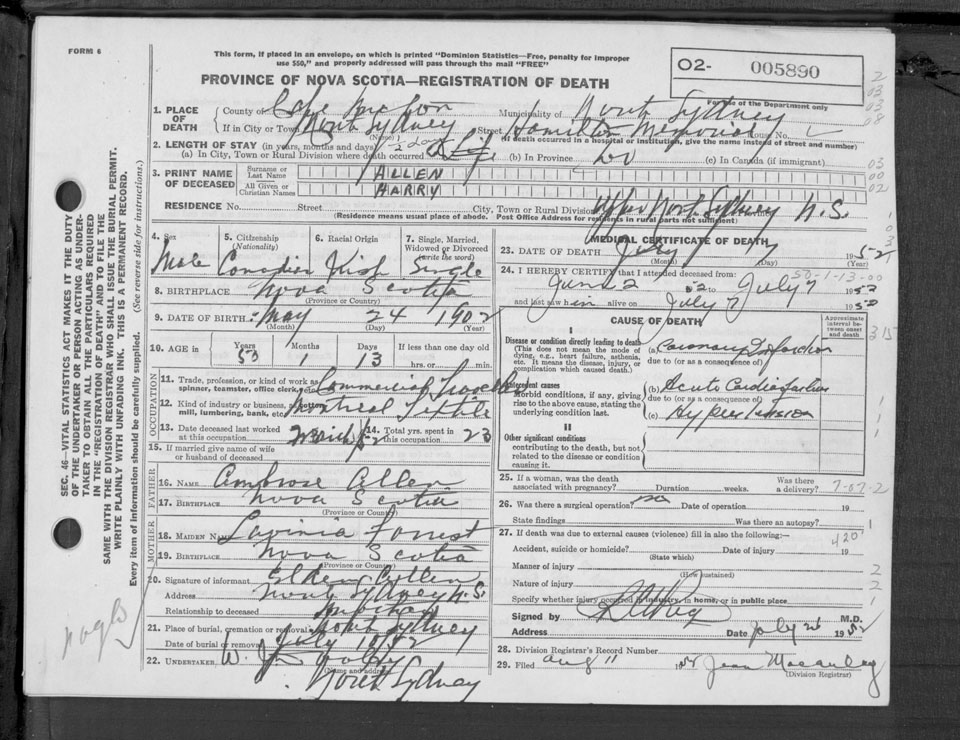 FORM 6
This form, if placed in an envelope, on which is printed "Dominion Statistics—Free, penalty for improper
use $50," and properly addressed will pass through the mail "FREE"
PROVINCE OF NOVA SCOTIA—REGISTRATION OF DEATH
O2- 005890
For use of the Department only
1. PLACE OF DEATH County of Cape Breton Municipality of North Sydney
If in City or Town North Sydney Street Hamilton Memorial House No.
(Name) (If death occurred in a hospital or institution, give the name instead of street and number)
2. LENGTH OF STAY (in years, months and days)
(a) In City, Town or Rural Division where death occurred Life (b) In Province Do (c) In Canada (if immigrant)
3. PRINT NAME OF DECEASED Surname or Last Name ALLEN
All Given or Christian Names HARRY
RESIDENCE No. Street City, Town or Rural Division Upper North Sydney N.S.
(Residence means usual place of abode. Post Office Address for residents in rural parts not sufficient)
4. Sex 5. Citizenship (Nationality) 6. Racial Origin 7. Single, Married, Widowed or Divorced (write the word)
Male Canadian Irish Single
8. BIRTHPLACE Nova Scotia
(Province or Country)
9. DATE OF BIRTH May 24 1902
(Month) (Day) (Year)
10. AGE in Years Months Days If less than one day old
50 1 13 hrs. or min.
OCCUPATION
11. Trade, profession, or kind of work as spinner, teamster, office clerk, etc. Commercial Traveller
12. Kind of industry or business, as cotton mill, lumbering, bank, etc. Montreal Textile
13. Date deceased last worked at this occupation March/52 14. Total yrs. spent in this occupation 23
15. If married give name of wife or husband of deceased
FATHER
16. NAME Ambrose Allen
17. BIRTHPLACE Nova Scotia
(Province or Country)
MOTHER
18. MAIDEN NAME Lavinia Forrest
19. BIRTHPLACE Nova Scotia
(Province or Country)
20. Signature of informant Allen
Address North Sydney N.S.
Relationship to deceased
21. Place of burial, cremation or removal North Sydney
Date of burial or removal July 1952
22. UNDERTAKER W. J.
(Name and address)
North Sydney
MEDICAL CERTIFICATE OF DEATH
23. DATE OF DEATH July 7 1952
(Day) (Year)
50-1-13-00
24. I HEREBY CERTIFY that I attended deceased from:
June 2 52 to July 7 1952
and last saw him alive on July 7 1952
CAUSE OF DEATH
Approximate interval between onset and death
I
Disease or condition directly leading to death
(This does not mean the mode of dying, e.g., heart failure, asthenia, etc. It means the disease, injury, or complication which caused death.)
(a) Coronary Infarction
due to (or as a consequence of)
Antecedent causes
Morbid conditions, if any, giving rise to the above cause, stating the underlying condition last.
(b) Acute Cardiac failure
due to (or as a consequence of)
(c) Hypertension
II
Other significant conditions
contributing to the death, but not related to the disease or condition causing it.
25. If a woman, was the death associated with pregnancy? Duration weeks. Was there a delivery?
26. Was there a surgical operation? no Date of operation 19
State findings Was there an autopsy?
27. If death was due to external causes (violence) fill in also the following:—
420
Accident, suicide or homicide? Date of injury 19
(State which)
Manner of injury
(How sustained)
Nature of injury
Specify whether injury occurred in industry, in home, or in public place
Signed by M.D.
Address Date July 26 1952
28. Division Registrar's Record Number
29. Filed Aug 11 1952 Jean Macaulay
(Division Registrar)
SEC. 46—VITAL STATISTICS ACT MAKES IT THE DUTY
OF THE UNDERTAKER OR PERSON ACTING AS UNDERTAKER TO OBTAIN ALL THE PARTICULARS REQUIRED
IN THE "REGISTRATION OF DEATH" AND TO FILE THE
SAME WITH THE DIVISION REGISTRAR WHO SHALL ISSUE THE BURIAL PERMIT.
WRITE PLAINLY WITH UNFADING INK. THIS IS A PERMANENT RECORD.
Every item of information should be carefully supplied. (See reverse side for instructions.)